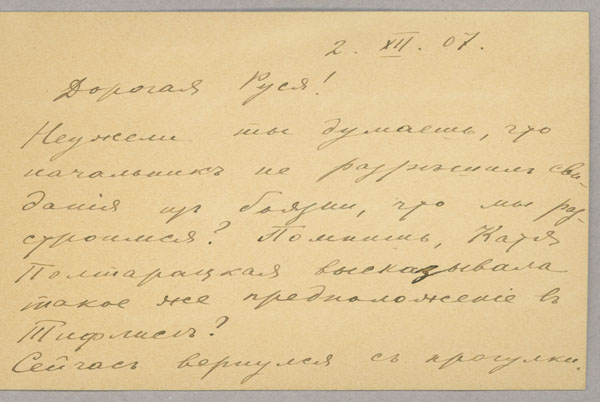 2. XII. 07.
Дорогая Руся!
Неужели ты думаешь, что
начальникъ не разрѣшилъ сви-
данія изъ боязни, что мы раз-
строимся? Помнишь, Катя
Полтарацкая высказывала
такое же предположеніе въ
Тифлисѣ?
Сейчасъ вернулся съ прогулки.